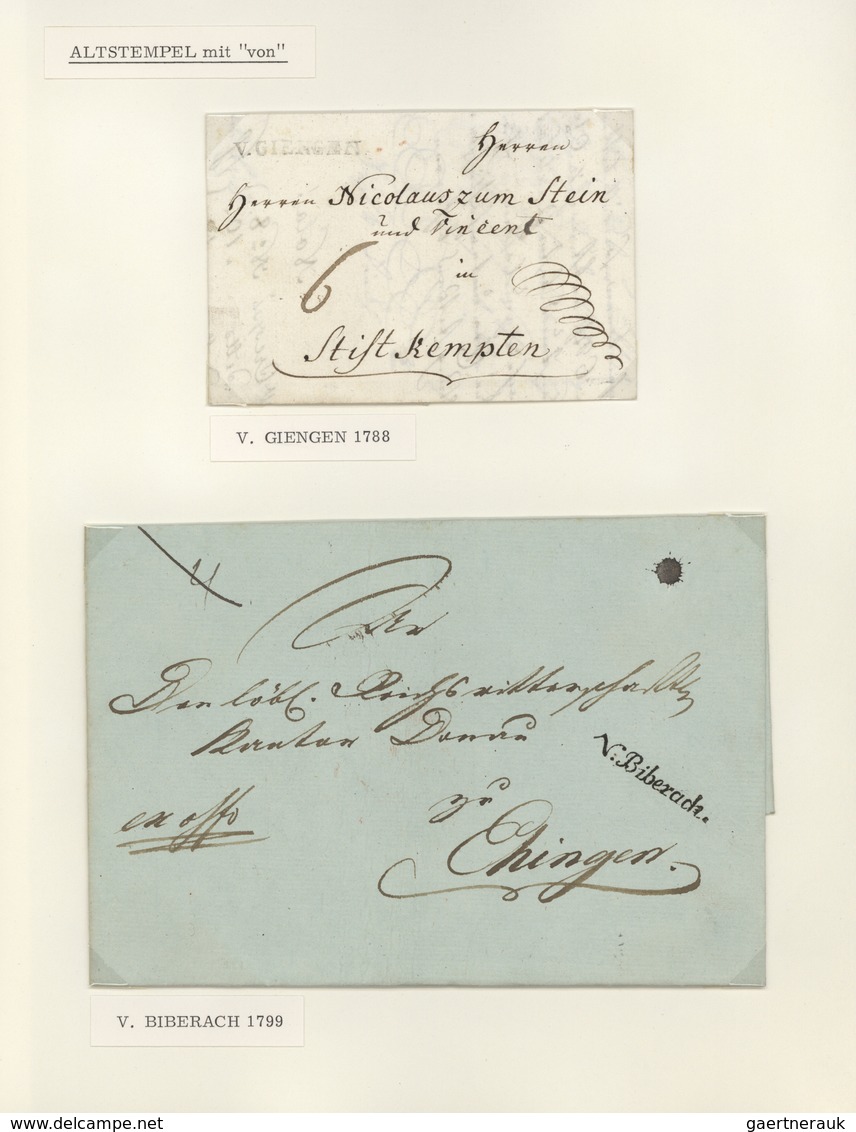 ALTSTEMPEL mit "von"
V. GIENGEN.
Herren
Herren Nicolaus zum Stein
und Vincent
in
6
Stift Kempten
V. GIENGEN 1788
An
Den löbl. Reichsritterschaftl
Kanton Donau
V: Biberach.
ex offo
zu
Ehingen.
V. BIBERACH 1799
www.delcampe.net
gaertnerauk